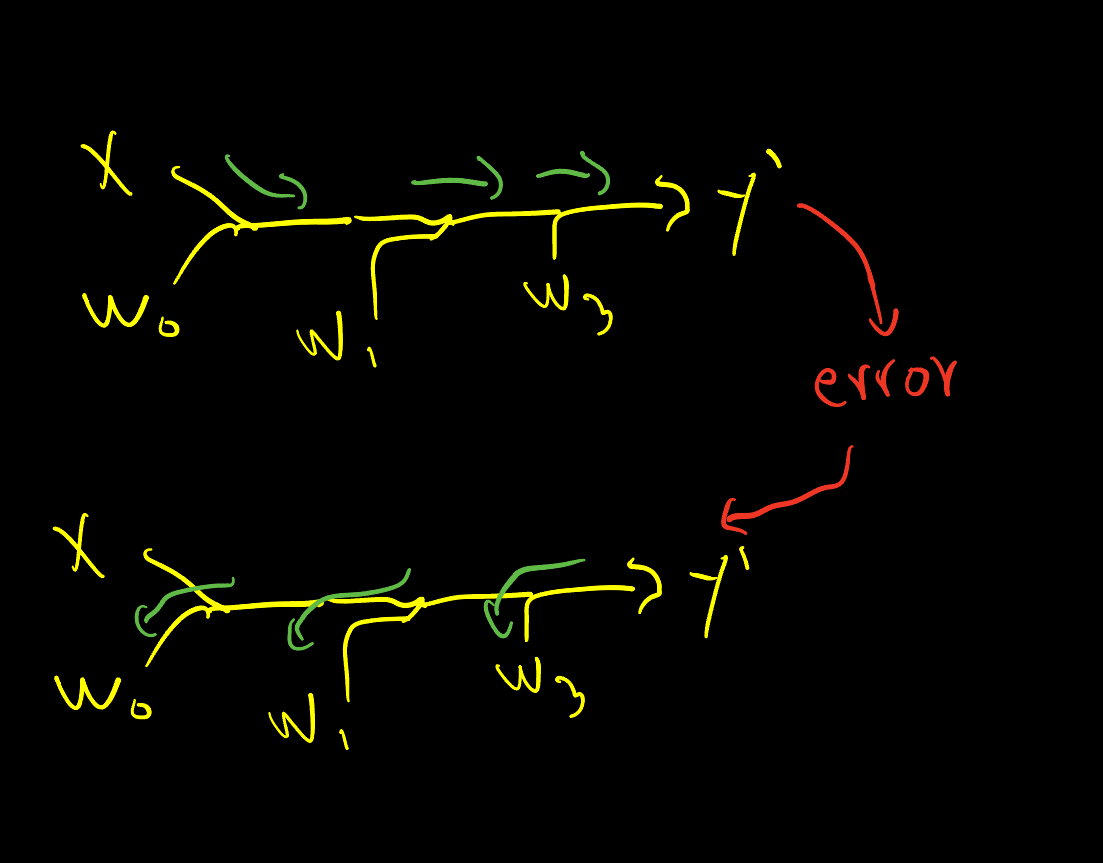 X
Y'
W0
W1
W3
error
X
Y'
W0
W1
W3